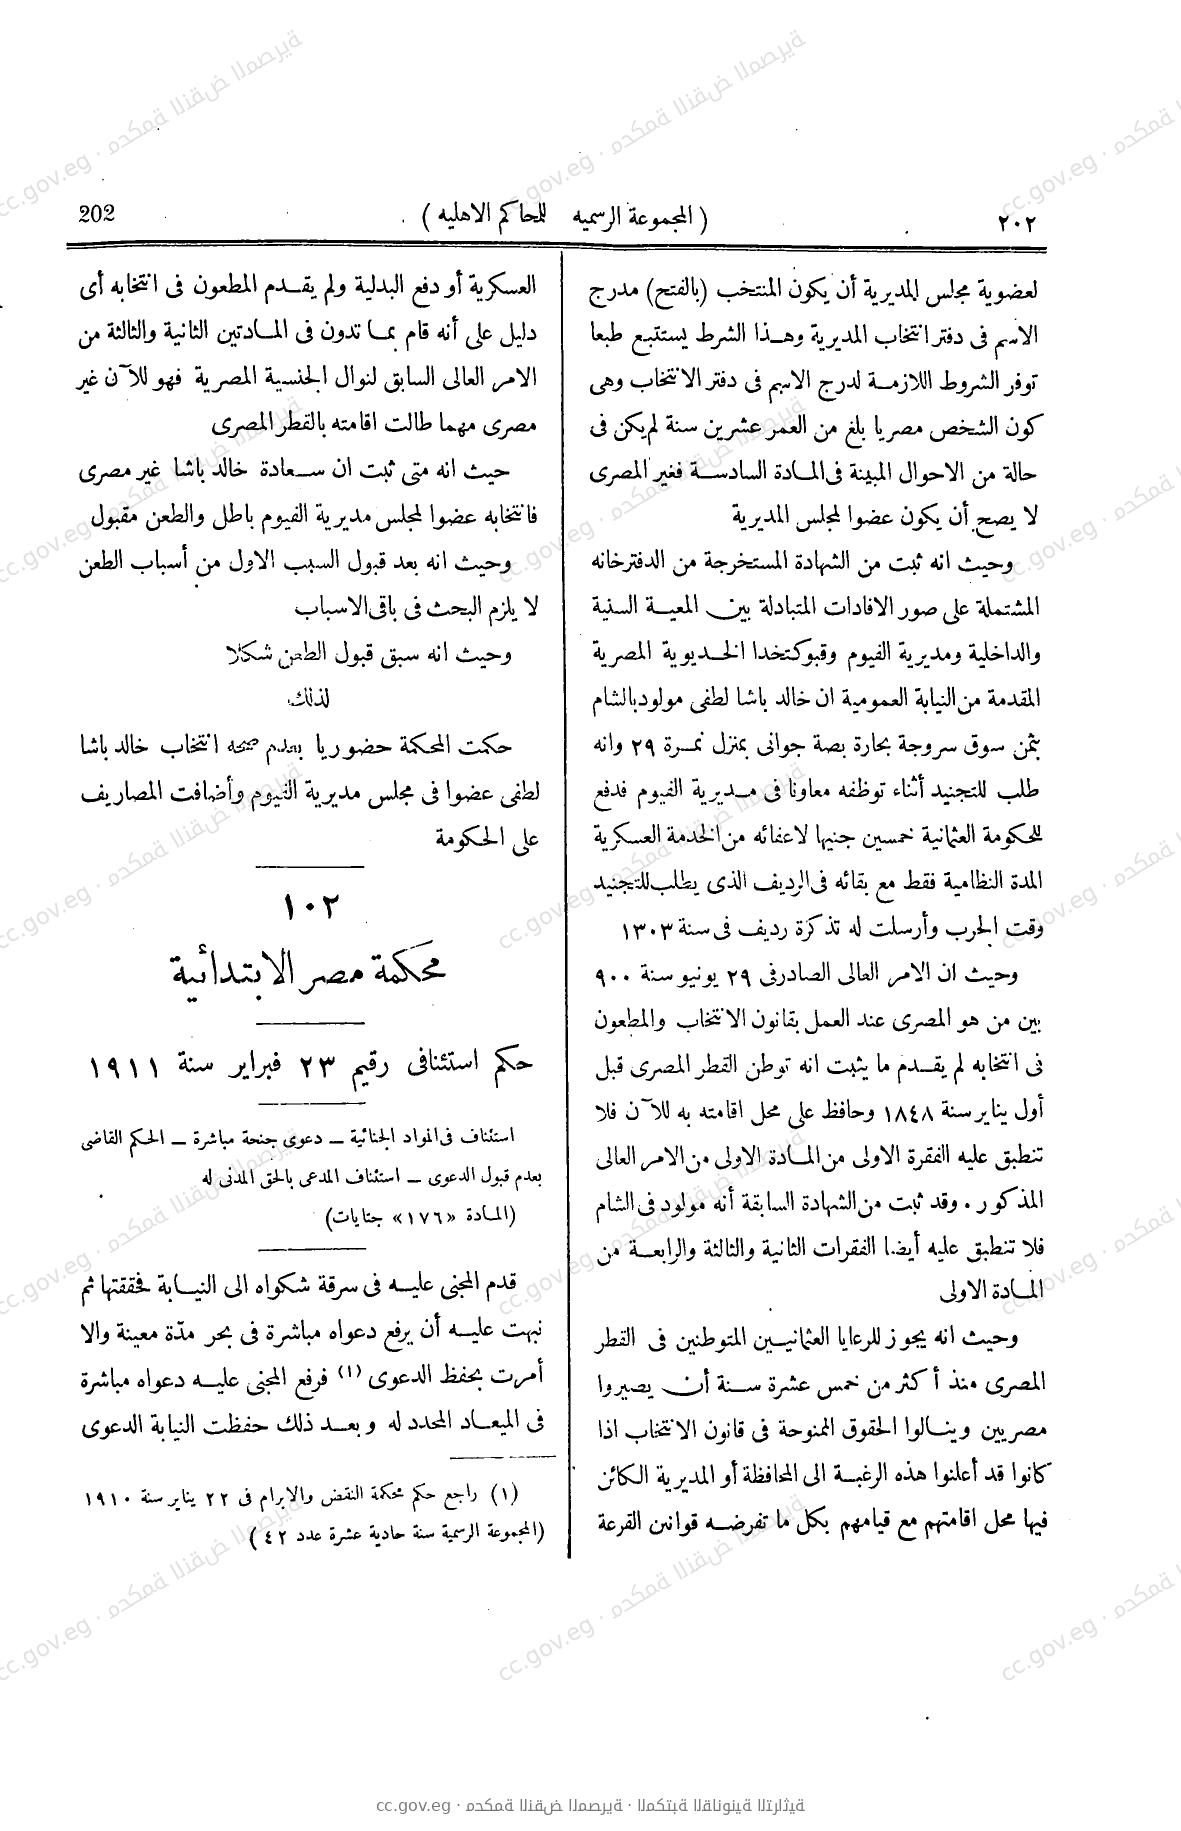 ٢٠٢ (المجموعة الرسميه للمحاكم الاهليه) 202
لعضوية مجلس المديرية أن يكون المنتخب (بالفتح) مدرج
الاسم فى دفتر انتخاب المديرية وهذا الشرط يستتبع طبعا
توفر الشروط اللازمة لدرج الاسم فى دفتر الانتخاب وهى
كون الشخص مصريا بلغ من العمر عشرين سنة لم يكن فى
حالة من الاحوال المبينة فى المادة السادسة فغير المصرى
لا يصح أن يكون عضوا لمجلس المديرية
وحيث انه ثبت من الشهادة المستخرجة من الدفترخانه
المشتملة على صور الافادات المتبادلة بين المعية السنية
والداخلية ومديرية الفيوم وقبوكتخدا الخديوية المصرية
المقدمة من النيابة العمومية ان خالد باشا لطفى مولود بالشام
بثمن سوق سروجة بحارة بصة جوانى بمنزل نمرة ٢٩ وانه
طلب للتجنيد أثناء توظفه معاونا فى مديرية الفيوم فدفع
للحكومة العثمانية خمسين جنيها لاعفائه من الخدمة العسكرية
المدة النظامية فقط مع بقائه فى الرديف الذى يطلب للتجنيد
وقت الحرب وأرسلت له تذكرة رديف فى سنة ١٣٠٣
وحيث ان الامر العالى الصادر فى ٢٩ يونيو سنة ٩٠٠
بين من هو المصرى عند العمل بقانون الانتخاب والمطعون
فى انتخابه لم يقدم ما يثبت انه توطن القطر المصرى قبل
أول يناير سنة ١٨٤٨ وحافظ على محل اقامته به للآن فلا
تنطبق عليه الفقرة الاولى من المادة الاولى من الامر العالى
المذكور . وقد ثبت من الشهادة السابقة أنه مولود فى الشام
فلا تنطبق عليه أيضا الفقرات الثانية والثالثة والرابعة من
المادة الاولى
وحيث انه يجوز للرعايا العثمانيين المتوطنين فى القطر
المصرى منذ أكثر من خمس عشرة سنة أن يصيروا
مصريين وينالوا الحقوق الممنوحة فى قانون الانتخاب اذا
كانوا قد أعلنوا هذه الرغبة الى المحافظة أو المديرية الكائن
فيها محل اقامتهم مع قيامهم بكل ما تفرضه قوانين القرعة
العسكرية أو دفع البدلية ولم يقدم المطعون فى انتخابه أى
دليل على أنه قام بما تدون فى المادتين الثانية والثالثة من
الامر العالى السابق لنوال الجنسية المصرية فهو للآن غير
مصرى مهما طالت اقامته بالقطر المصرى
حيث انه متى ثبت ان سعادة خالد باشا غير مصرى
فانتخابه عضوا لمجلس مديرية الفيوم باطل والطعن مقبول
وحيث انه بعد قبول السبب الاول من أسباب الطعن
لا يلزم البحث فى باقى الاسباب
وحيث انه سبق قبول الطعن شكلا
لذلك
حكمت المحكمة حضوريا بعدم صحة انتخاب خالد باشا
لطفى عضوا فى مجلس مديرية الفيوم وأضافت المصاريف
على الحكومة
١٠٢
محكمة مصر الابتدائية
حكم استئنافى رقيم ٢٣ فبراير سنة ١٩١١
استئناف فى المواد الجنائية ــ دعوى جنحة مباشرة ــ الحكم القاضى
بعدم قبول الدعوى ــ استئناف المدعى بالحق المدنى له
(المادة «١٧٦» جنايات)
قدم المجنى عليه فى سرقة شكواه الى النيابة فحققتها ثم
نبهت عليه أن يرفع دعواه مباشرة فى بحر مدّة معينة والا
أمرت بحفظ الدعوى (١) فرفع المجنى عليه دعواه مباشرة
فى الميعاد المحدد له وبعد ذلك حفظت النيابة الدعوى
(١) راجع حكم محكمة النقض والابرام فى ٢٢ يناير سنة ١٩١٠
(المجموعة الرسمية سنة حادية عشرة عدد ٤٢)
cc.gov.eg · محكمة النقض المصرية · المكتبة القانونية التراثية